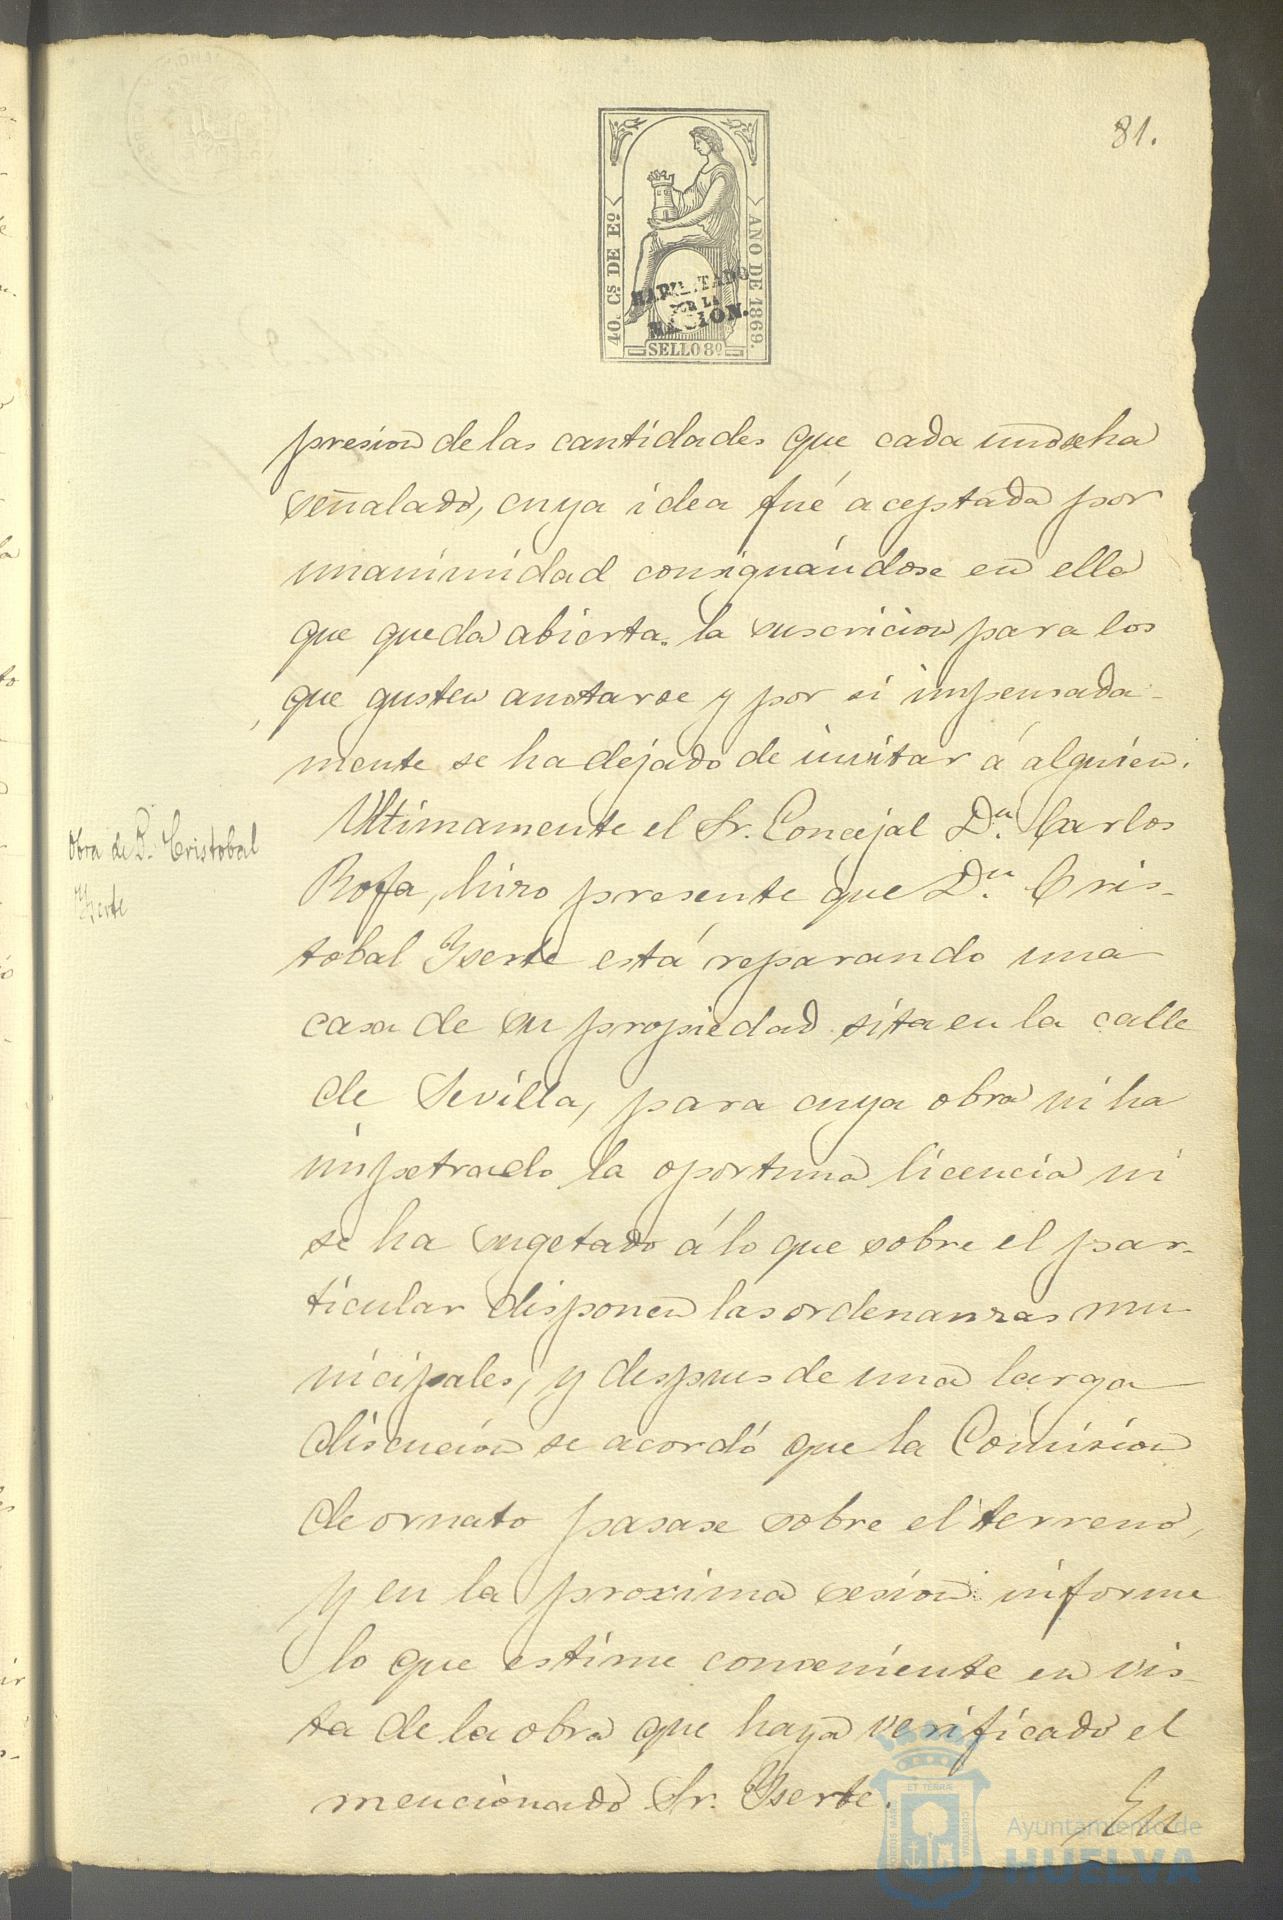 81.
40. Cs DE Eº
AÑO DE 1869.
HABILITADO
POR LA
NACION.
SELLO 8º
presion de las cantidades que cada uno se ha
señalado, cuya idea fué aceptada por
unanimidad consignándose en ella
que queda abierta la suscricion para los
que gusten anotarse y por si impensada-
mente se ha dejado de invitar á alguien.
Obra de D. Cristobal
Yserte
Ultimamente el Sr. Concejal Dn. Carlos
Rofa, hizo presente que Dn. Cris-
tobal Yserte está reparando una
casa de su propiedad sita en la calle
de Sevilla, para cuya obra ni ha
impetrado la oportuna licencia ni
se ha sugetado á lo que sobre el par-
ticular disponen las ordenanzas mu-
nicipales, y despues de una larga
discucion se acordó que la Comision
de ornato pasase sobre el terreno,
y en la proxima sesion informe
lo que estime conveniente en vis-
ta de la obra que haya verificado el
mencionado Sr. Yserte.
En
Ayuntamiento de
HUELVA